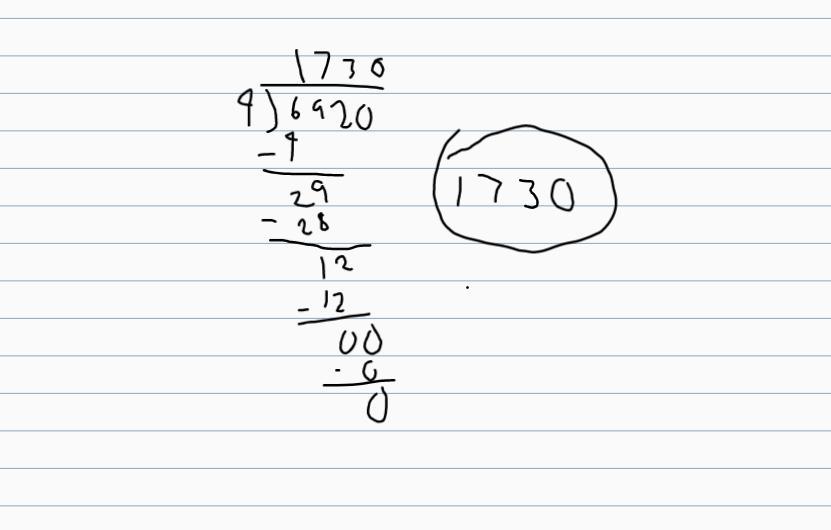 1730
4)6920
-4
29
-28
12
-12
00
-0
0
1730